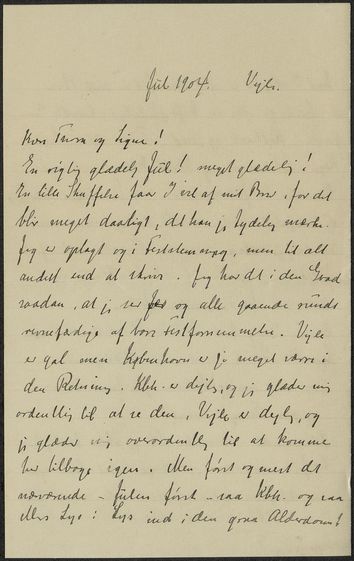 Jul 1904. Vejle.
Kære Thora og Signe!
En rigtig glædelig Jul! meget glædelig!
En lille Skuffelse faar I vel af mit Brev, for det
blir meget daarligt, det kan jeg tydelig mærke.
Jeg er oplagt og i Feststemning, men til alt
andet end at skrive. Jeg har det i den Grad
saadan, at jeg ser og alle gaaende rundt
revnefærdige af bare Festfornemmelse. Vejle
er gal men København er jo meget værre i
den Retning. Kbh. er dejlig, og jeg glæder mig
ordentlig til at se den, Vejle er dejlig, og
jeg glæder mig overordentlig til at komme
her tilbage igen. Men først og mest det
nærværende – Julen først – saa Kbh. og saa
Lys! Lys ind i den graa Alderdom!